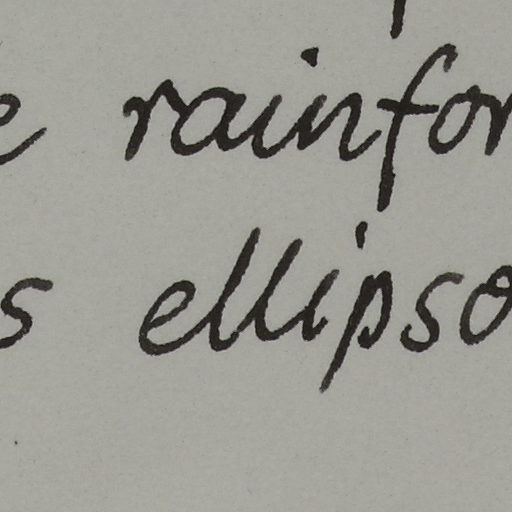 e rainfor
s ellipso